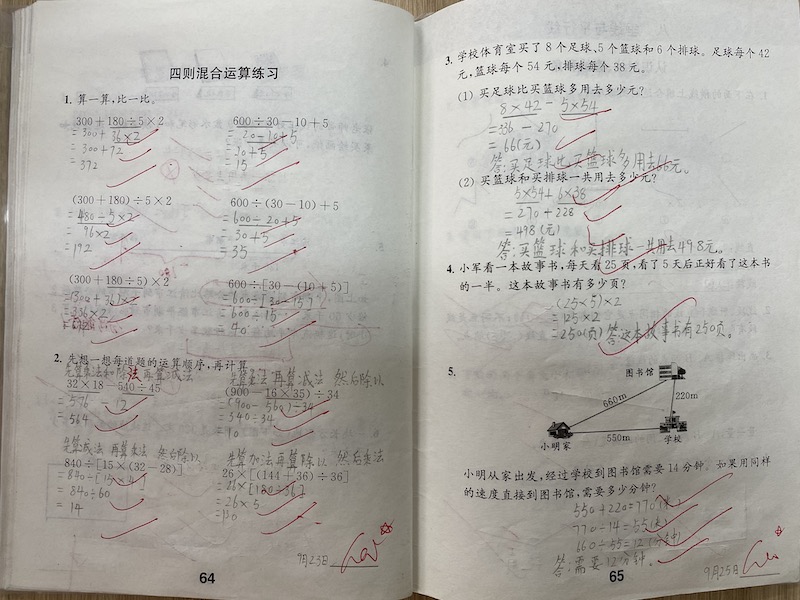 四则混合运算练习
1. 算一算,比一比。
300+180÷5×2
=300+36×2
=300+72
=372
600÷30-10+5
=20-10+5
=10+5
=15
(300+180)÷5×2
=480÷5×2
=96×2
=192
600÷(30-10)+5
=600÷20+5
=30+5
=35
(300+180÷5)×2
=(300+36)×2
=336×2
=672
600÷[30-(10+5)]
=600÷[30-15]
=600÷15
=40
2. 先想一想每道题的运算顺序,再计算。
先算乘法和除法再算减法
32×18-540÷45
=576-12
=564
先算乘法 再算减法 然后除以
(900-16×35)÷34
=(900-560)÷34
=340÷34
=10
先算减法 再算乘法 然后除以
840÷[15×(32-28)]
=840÷[15×4]
=840÷60
=14
先算加法再算除以 然后乘法
26×[(144+36)÷36]
=26×[180÷36]
=26×5
=130
9月23日
64
3. 学校体育室买了 8 个足球、5 个篮球和 6 个排球。足球每个 42
元,篮球每个 54 元,排球每个 38 元。
(1) 买足球比买篮球多用去多少元?
8×42-5×54
=336-270
=66(元)
答:买足球比买篮球多用去66元。
(2) 买篮球和买排球一共用去多少元?
5×54+6×38
=270+228
=498(元)
答:买篮球和买排球一共用去498元。
4. 小军看一本故事书,每天看 25 页,看了 5 天后正好看了这本书
的一半。这本故事书有多少页?
(25×5)×2
=125×2
=250(页) 答:这本故事书有250页。
5.
图书馆
660m
220m
小明家
550m
学校
小明从家出发,经过学校到图书馆需要 14 分钟。如果用同样
的速度直接到图书馆,需要多少分钟?
550+220=770(米)
770÷14=55(米)
660÷55=12(分钟)
答:需要12分钟。
9月25日
65